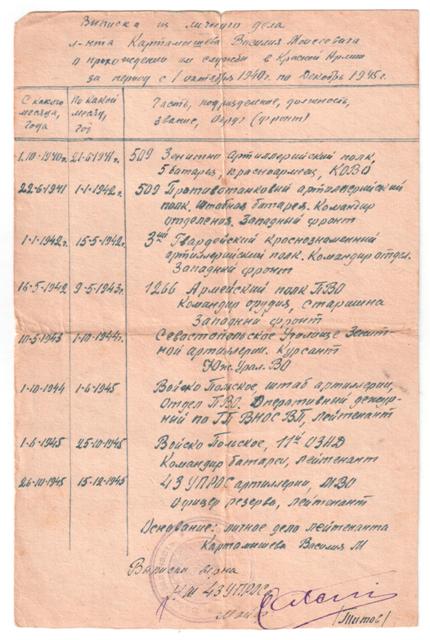 Выписка из личного дела
л-нта Картамышева Василия Моисеевича
о прохождении им службы в Красной Армии
за период с 1 октября 1940г. по Декабрь 1945г.
С какого месяца, года
По какой месяц, год
Часть, подразделение, должность, звание, округ (фронт)
1.10.1940г. 21-6-1941г. 509 Зенитно артиллерийский полк,
5 батарея, красноармеец, КОВО
22-6-1941 1-1-1942г. 509 Противотанковый артиллерийский
полк, штабная батарея. Командир
отделения. Западный фронт
1-1-1942г. 15-5-1942г. 3ий Гвардейский Краснознаменный
артиллерийский полк. Командир отдел.
Западный фронт
16-5-1942 9-5-1943г. 1266 Армейский полк ПВО
Командир орудия, старшина
Западный фронт
10-5-1943 1-10-1944г. Севастопольское Училище Зенит-
ной артиллерии. Курсант
Юж. Урал. ВО
1-10-1944 1-6-1945 Войско Польское, штаб артиллерии,
Отдел ПВО. Оперативный
по ВНОС ВП, лейтенант
1-6-1945 25-10-1945 Войско Польское, 11й ОЗАД
Командир батареи, лейтенант
26-10-1945 15-12-1945 43 УПРОС артиллерии, МВО
Офицер резерва, лейтенант
Основание: личное дело лейтенанта
Картамышева Василия М
Выписка верна
НШ 43 УПРОС
(Титов)